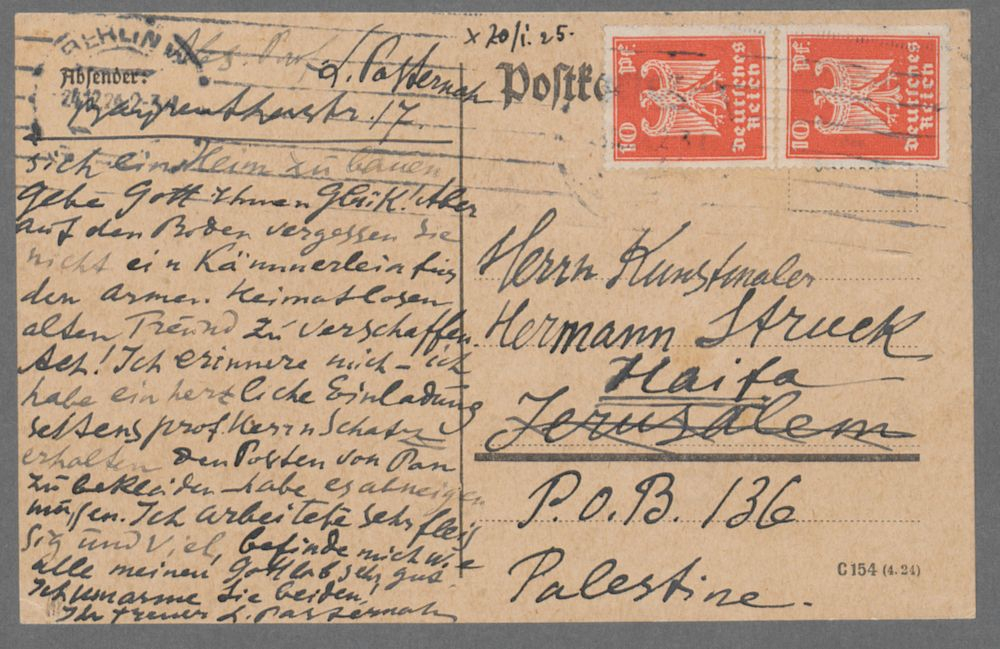 x 20/I. 25.
BERLIN W
24.12.24. 2-3
Absender:
L. Pasternak
Bayreutherstr. 17.
Postka
10 Pf.
Deutsches Reich
10 Pf.
Deutsches Reich
sich ein Heim zu bauen
gebe Gott Ihnen Glük! Aber
auf den Boden vergessen Sie
nicht ein Kämmerlein für
den armen. Heimatlosen
alten Freund zu verschaffen.
Ach! Ich erinnere mich – ich
habe ein herzliche Einladung
seitens prof. Herrn Schatz
erhalten den Posten von
zu bekleiden – habe es abneigen
müssen. Ich arbeitete sehr fleis
sig und viel, befinde mich w. e
alle meinen Gottlob sehr gut
Ich umarme Sie beiden!
Ihr treuer L. Pasternak
Herrn Kunstmaler
Hermann Struck
Haifa
Jerusalem
P.O.B. 136
Palestine.
C 154 (4. 24)